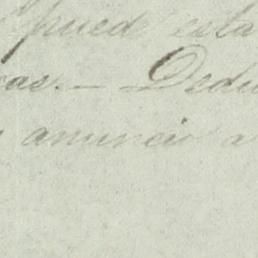 pued esta
cas. — Dedu
anuncio a